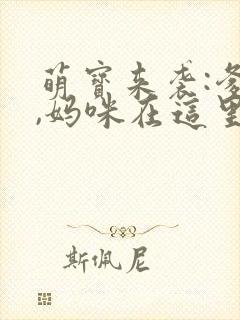 萌寶来袭:爹
,妈咪在這里
斯佩尼